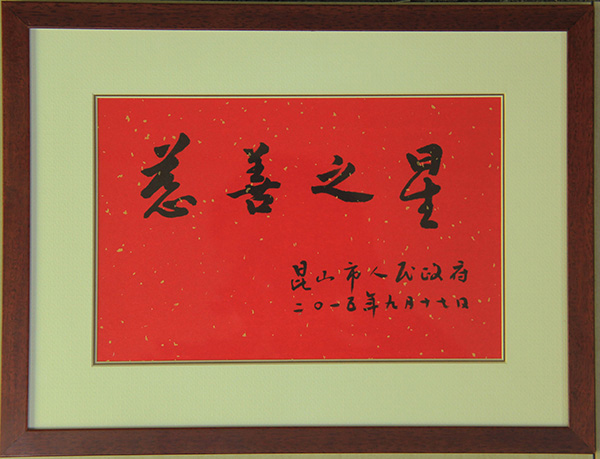 慈善之星
昆山市人民政府
二〇一五年九月十七日